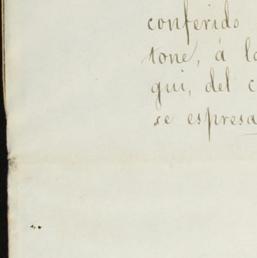 conferido
tone, á la
qui, del c
se espresa